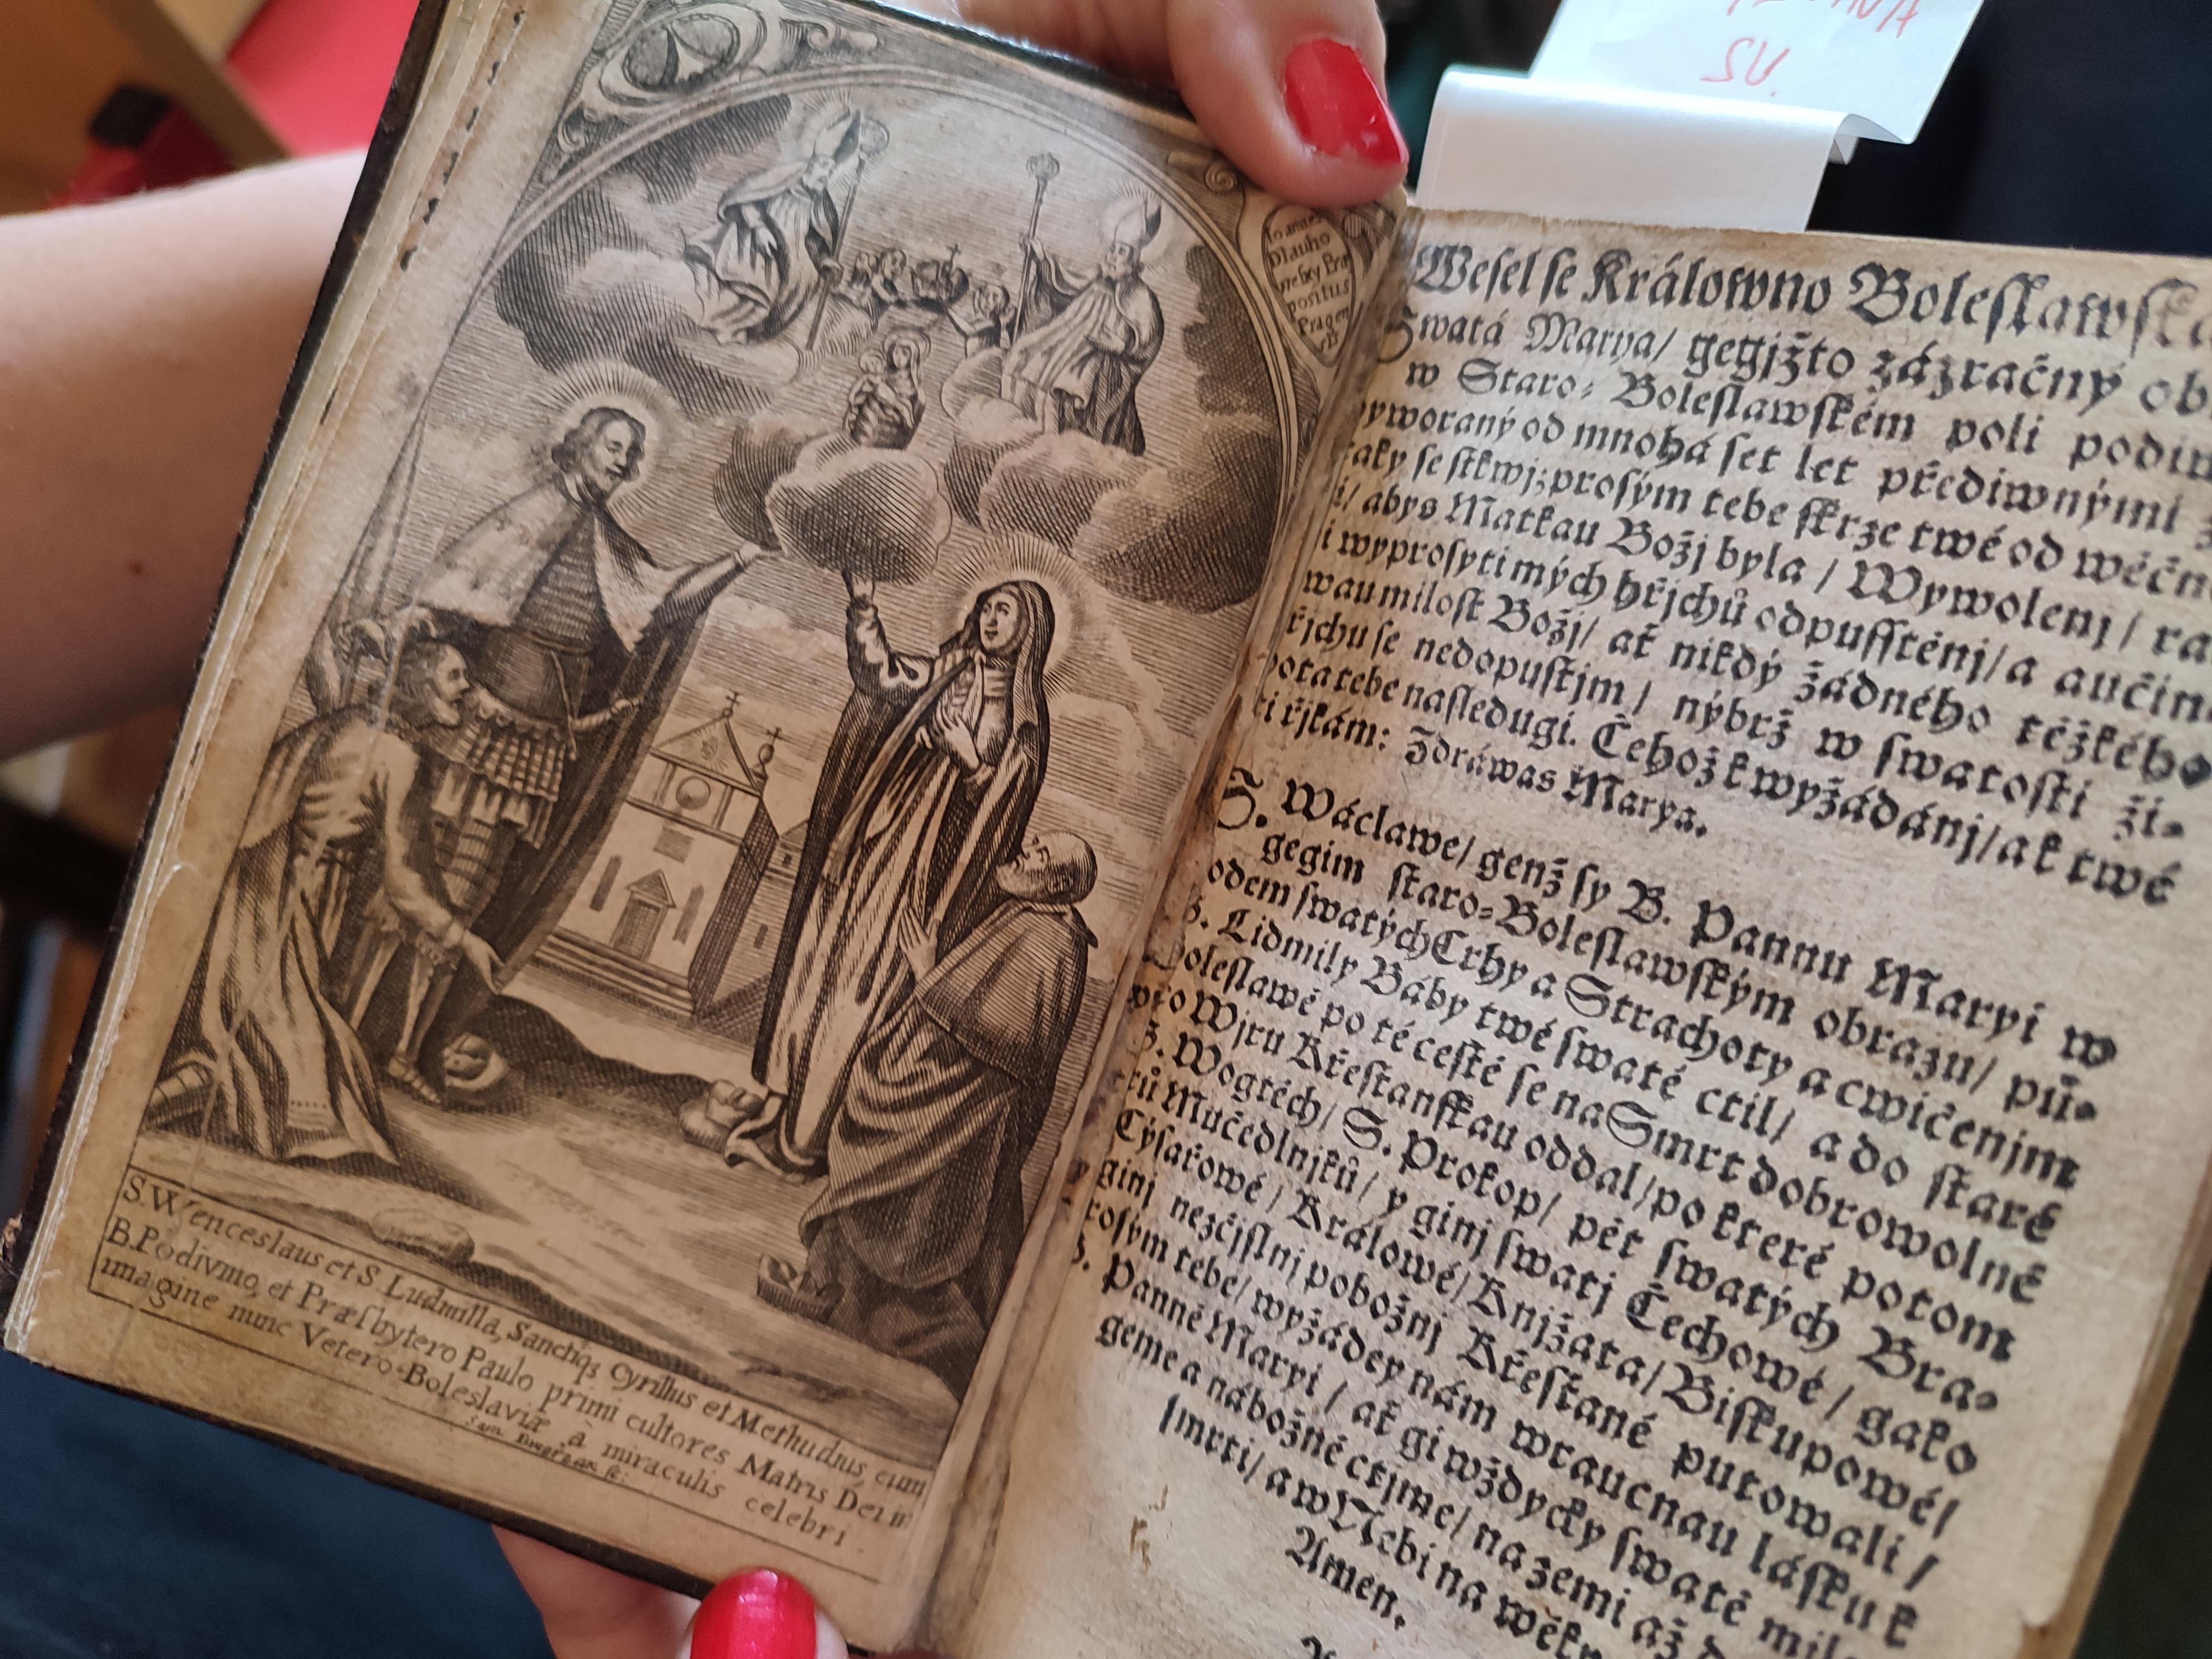 Dlauho
positus
Pragen
S. Wenceslaus et S. Ludmilla, Sanctiqȝ Cyrillus et Methudius, cum
B. Podivmo, et Præsbytero Paulo primi cultores Matris Dei in
imagine nunc Vetero-Boleslaviæ à miraculis celebri.
Wesel se Králowno Boleslawská
Swatá Marya/ gegjžto zázračný
w Staro-Boleslawském poli
od mnohá set let přediwnými
se stkwj; prosým tebe skrze twé od
abys Matkau Božj byla / Wywolenj /
wyprosyti mých hřjchů odpusstěnj/ a
milost Božj/ ať nikdý žádného těžkého
se nedopustjm / nýbrž w swatosti ži-
tebe nasledugi. Čehož k wyžádánj/ ať twé
řjkám: Zdráwas Marya.
S. Wáclawe/ genž sy B. Pannu Maryi w
gegim staro-Boleslawským obrazu/ pů-
odem swatých Crhy a Strachoty a cwičenjm
S. Lidmily Báby twé swaté ctil/ a do staré
Boleslawě po té cestě se na Smrt dobrowolně
pro Wjru Křestanskau oddal/ po které potom
S. Wogtěch/ S. Prokop/ pět swatých Bra-
trů Mučedlnjků/ y ginj swatj Čechowé/ gako
Cýsařowé/ Králowé/ Knjžata/ Biskupowé/
ginj nesčjslnj pobožnj Křestané putowali /
prosým tebe/ wyžádey nám wraucnau lásku k
B. Panně Maryi / ať gi wždycky swatě
geme a nábožně ctjme/ na zemi až
smrti/ a w Nebi na
Amen.